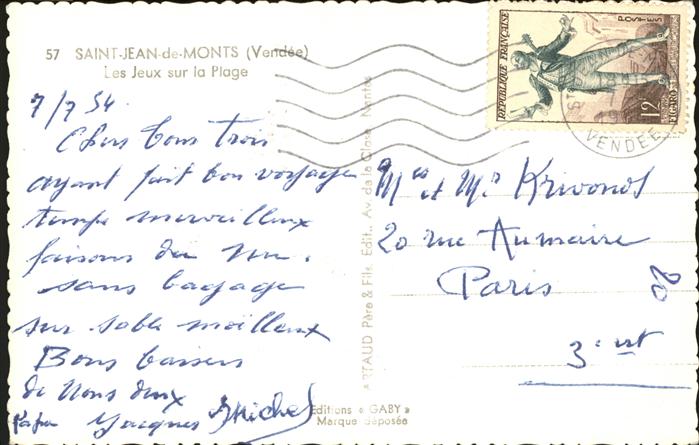 57 SAINT-JEAN-de-MONTS (Vendée)
Les Jeux sur la Plage
7/7 54.
Chers tous trois
ayant fait bon voyage
temps merveilleux
faisons du nu.
sans bagage
sur sable moelleux
Bons baisers
de Nous deux
Jacques Michel
ARTAUD Père & Fils, Edit., Av. de la Close, Nantes
Editions « GABY »
Marque déposée
REPUBLIQUE FRANÇAISE
POSTES
FIGARO
12F
VENDEE
Mme et Mr Krivonos
20 rue Aumaire
Paris
20
3e arrt